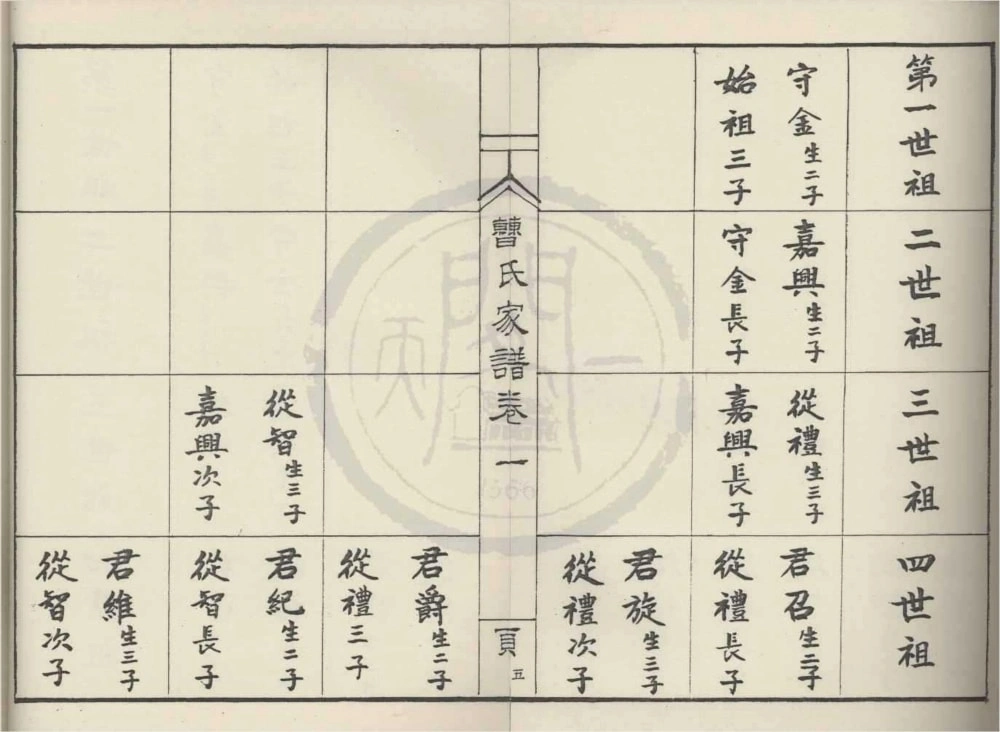 第一世祖
守金生二子
始祖三子
二世祖
嘉興生二子
守金長子
三世祖
從禮生三子
嘉興長子
從智生三子
嘉興次子
四世祖
君召生二子
從禮長子
君旋生三子
從禮次子
君爵生二子
從禮三子
君紀生二子
從智長子
君維生三子
從智次子
曹氏家譜卷一
頁五
天一閣
1566